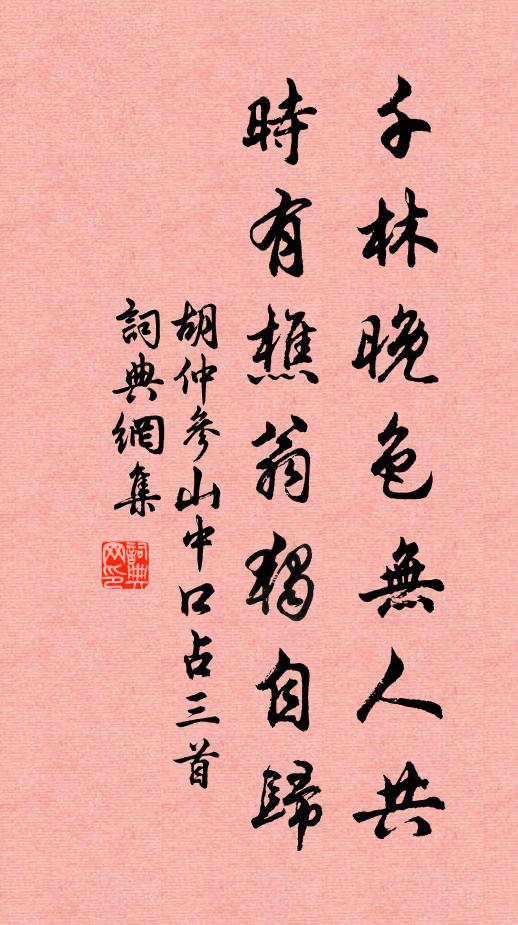 千林晚色無人共
時有樵翁獨自歸
胡仲參山中口占三首
詞典網集
詞典网印